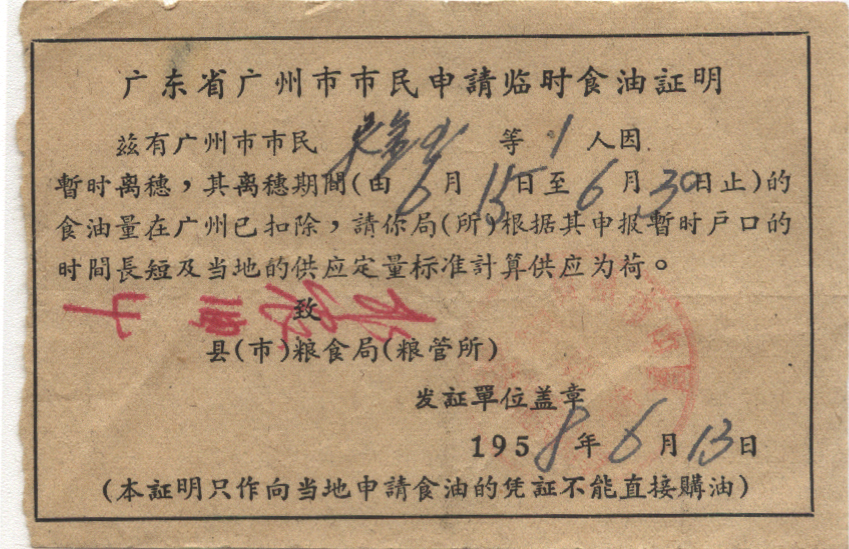 广东省广州市市民申請临时食油証明
兹有广州市市民 等1人因
暫时离穗，其离穗期間(由6月15日至6月30日止)的
食油量在广州已扣除，請你局(所)根据其申报暫时戶口的
时間長短及当地的供应定量标准計算供应为荷。
致
县(市)粮食局(粮管所)
发証單位盖章
1958年6月13日
(本証明只作向当地申請食油的凭証不能直接購油)